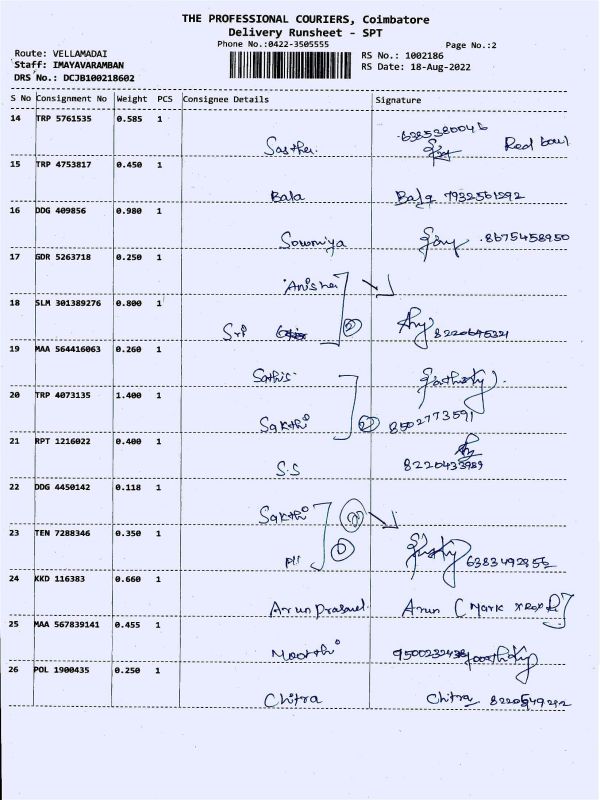 THE PROFESSIONAL COURIERS, Coimbatore
Delivery Runsheet - SPT
Phone No.:0422-3505555
Page No.:2
Route: VELLAMADAI
RS No.: 1002186
Staff: IMAYAVARAMBAN
RS Date: 18-Aug-2022
DRS No.: DCJB100218602
S No Consignment No Weight PCS Consignee Details Signature
14 TRP 5761535 0.585 1
6385380046
Red bowl
15 TRP 4753817 0.450 1
Bala Bala 7932561292
16 DDG 409856 0.980 1
Sowmiya 8675458950
17 GDR 5263718 0.250 1
Anisha
18 SLM 301389276 0.800 1
Sri 2
19 MAA 564416063 0.260 1
Sathis
20 TRP 4073135 1.400 1
Sakthi 2 8502773591
21 RPT 1216022 0.400 1
S.S 8220433989
22 DDG 4450142 0.118 1
Sakthi
23 TEN 7288346 0.350 1
6383492856
24 KKD 116383 0.660 1
Arun Prasad Arun ( Mark
25 MAA 567839141 0.455 1
Moorthi
26 POL 1900435 0.250 1
Chitra Chitra 8220549292